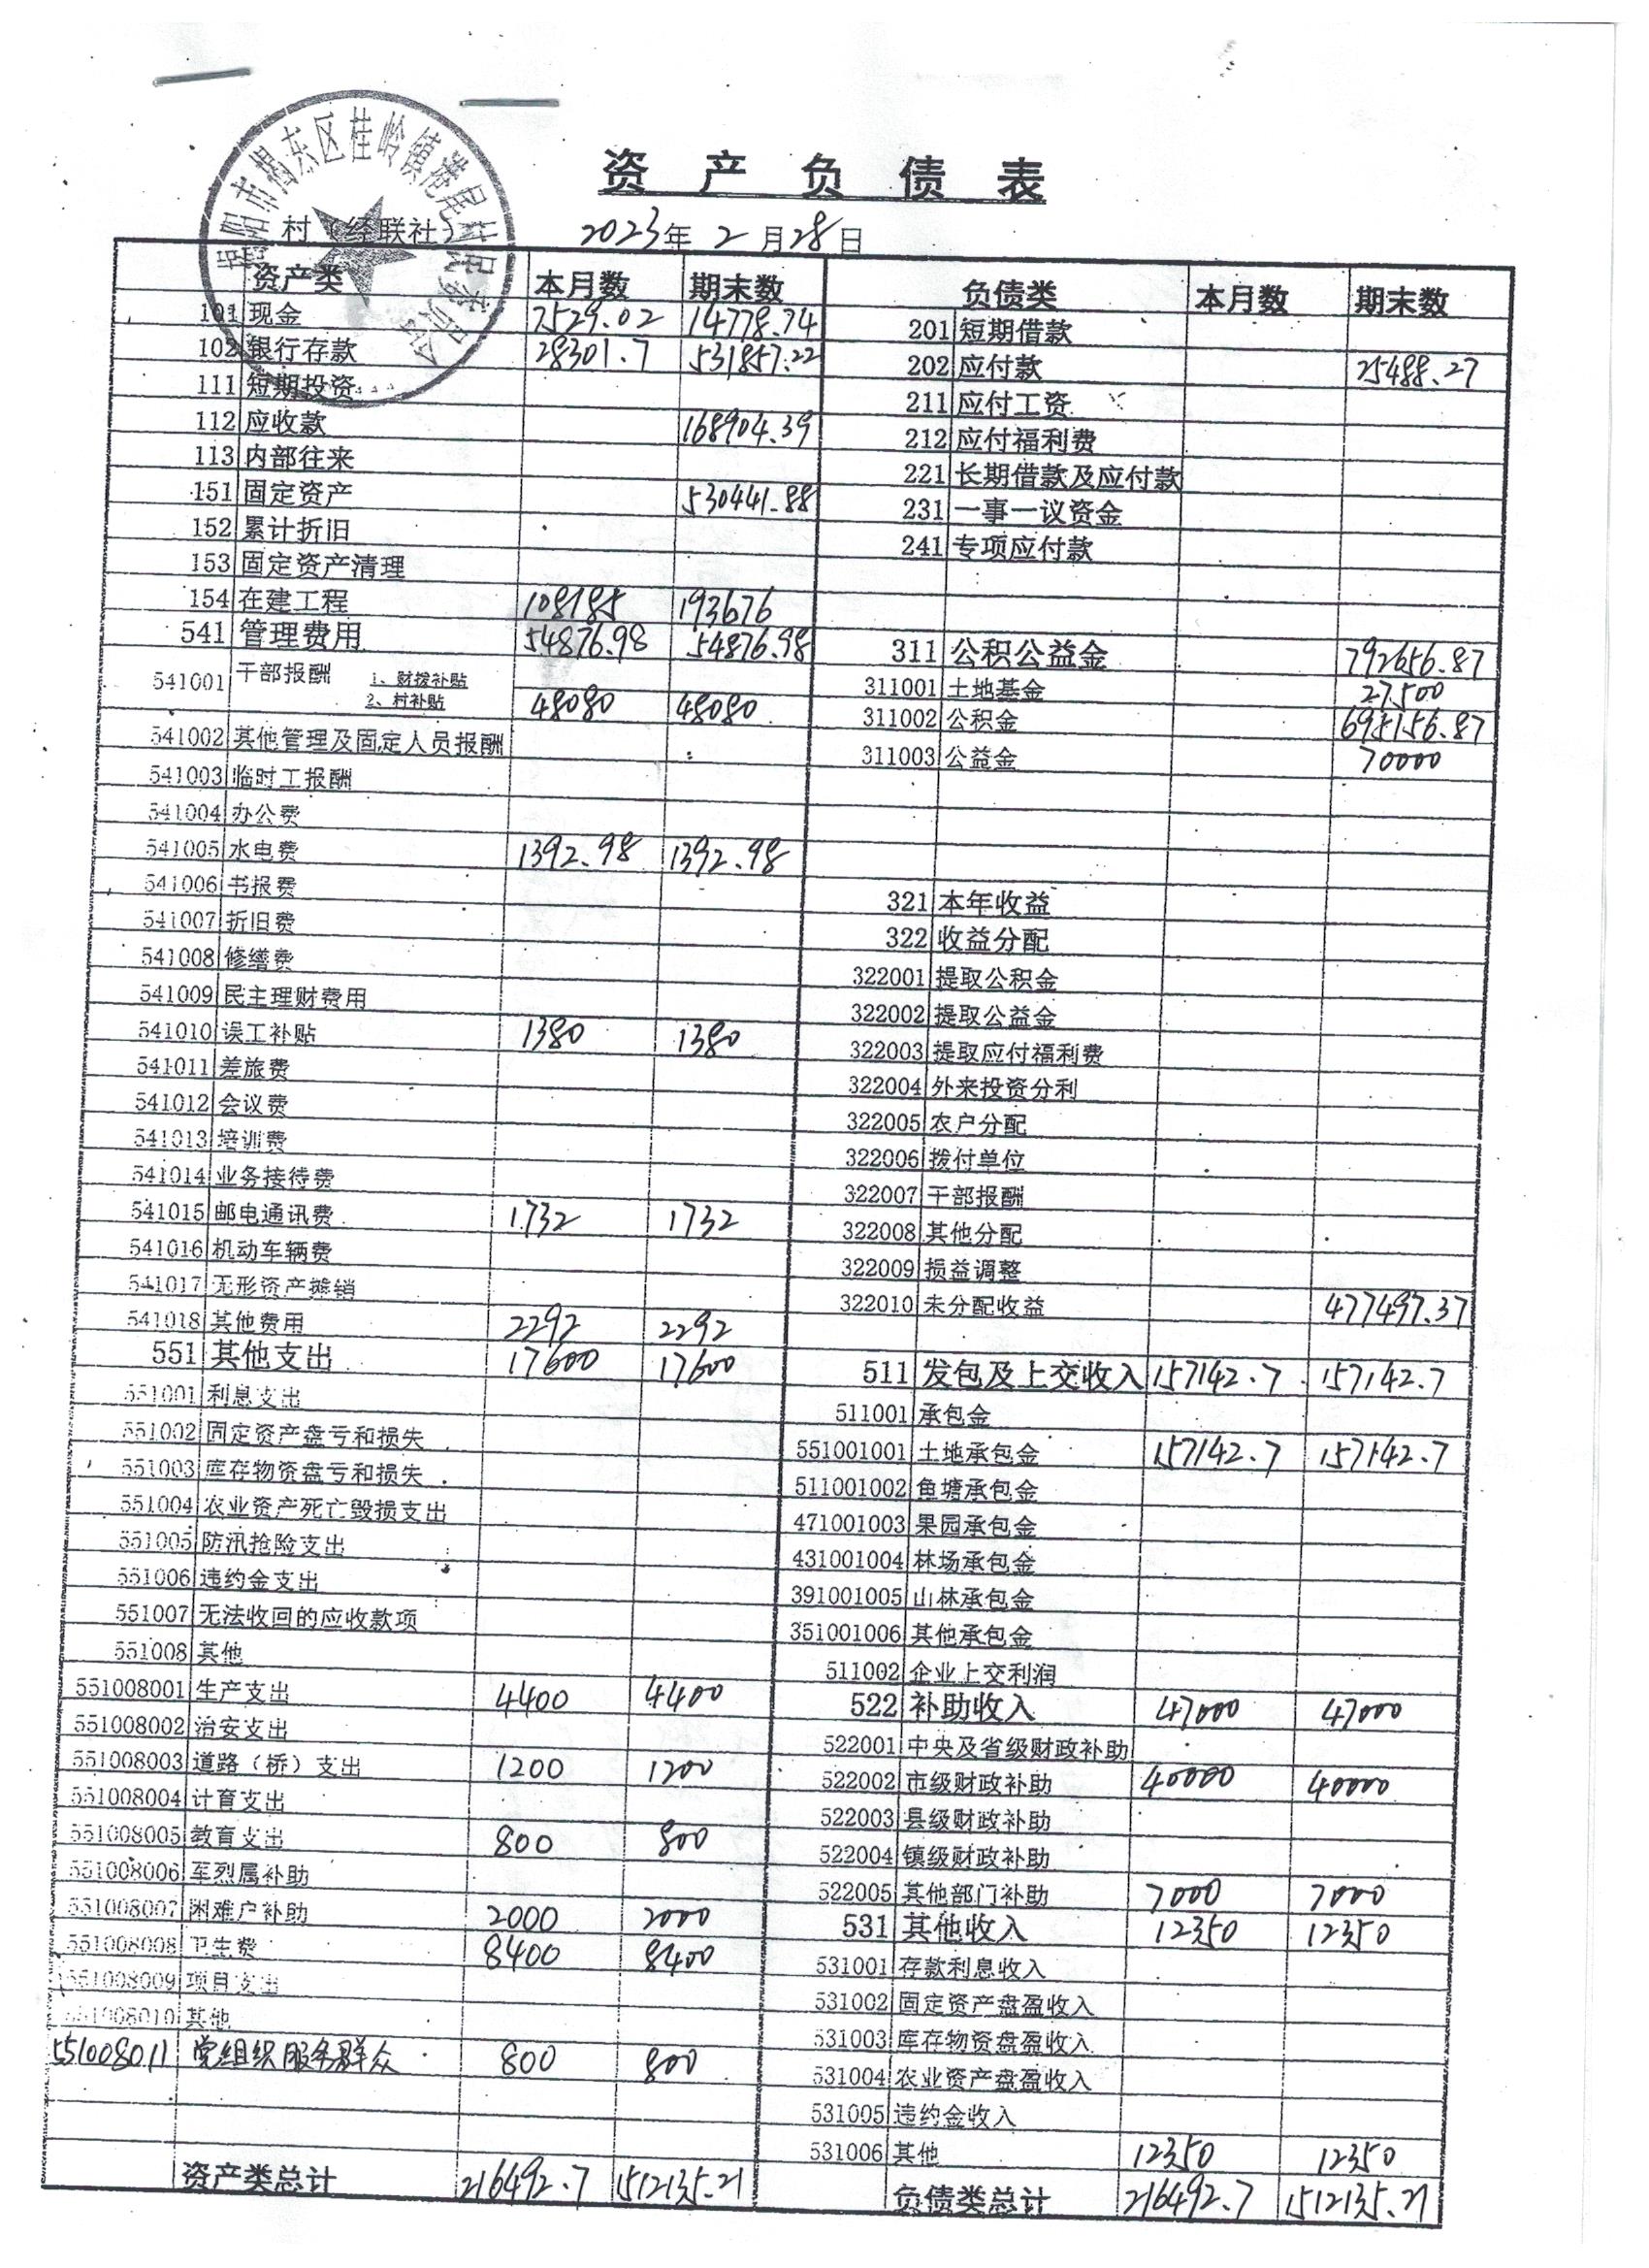 资产负债表
揭阳市揭东区桂岭镇港尾村民委员会
村（经联社） 2023年 2月28日
资产类 本月数 期末数 负债类 本月数 期末数
101 现金 7529.02 14778.74 201 短期借款
102 银行存款 28301.7 531857.22 202 应付款 25488.27
111 短期投资 211 应付工资
112 应收款 168904.39 212 应付福利费
113 内部往来 221 长期借款及应付款
151 固定资产 530441.88 231 一事一议资金
152 累计折旧 241 专项应付款
153 固定资产清理
154 在建工程 108185 193676
541 管理费用 54876.98 54876.98 311 公积公益金 792656.87
541001 干部报酬 1、财拨补贴 311001 土地基金 27500
2、村补贴 48080 48080 311002 公积金 695156.87
541002 其他管理及固定人员报酬 311003 公益金 70000
541003 临时工报酬
541004 办公费
541005 水电费 1392.98 1392.98
541006 书报费 321 本年收益
541007 折旧费 322 收益分配
541008 修缮费 322001 提取公积金
541009 民主理财费用 322002 提取公益金
541010 误工补贴 1380 1380 322003 提取应付福利费
541011 差旅费 322004 外来投资分利
541012 会议费 322005 农户分配
541013 培训费 322006 拨付单位
541014 业务接待费 322007 干部报酬
541015 邮电通讯费 1732 1732 322008 其他分配
541016 机动车辆费 322009 损益调整
541017 无形资产摊销 322010 未分配收益 477497.37
541018 其他费用 2292 2292
551 其他支出 17600 17600 511 发包及上交收入 157142.7 157142.7
551001 利息支出 511001 承包金
551002 固定资产盘亏和损失 551001001 土地承包金 157142.7 157142.7
551003 库存物资盘亏和损失 511001002 鱼塘承包金
551004 农业资产死亡毁损支出 471001003 果园承包金
551005 防汛抢险支出 431001004 林场承包金
551006 违约金支出 391001005 山林承包金
551007 无法收回的应收款项 351001006 其他承包金
551008 其他 511002 企业上交利润
551008001 生产支出 4400 4400 522 补助收入 47000 47000
551008002 治安支出 522001 中央及省级财政补助
551008003 道路（桥）支出 1200 1200 522002 市级财政补助 40000 40000
551008004 计育支出 522003 县级财政补助
551008005 教育支出 800 800 522004 镇级财政补助
551008006 军烈属补助 522005 其他部门补助 7000 7000
551008007 困难户补助 2000 2000 531 其他收入 12350 12350
551008008 卫生费 8400 8400 531001 存款利息收入
551008009 项目支出 531002 固定资产盘盈收入
551008010 其他 531003 库存物资盘盈收入
551008011 党组织服务群众 800 800 531004 农业资产盘盈收入
531005 违约金收入
531006 其他 12350 12350
资产类总计 216492.7 1512135.21 负债类总计 216492.7 1512135.21